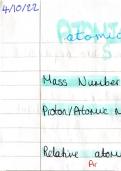 4/10/22
atomic
Mass Number
Proton/Atomic
Relative atomic
Ar